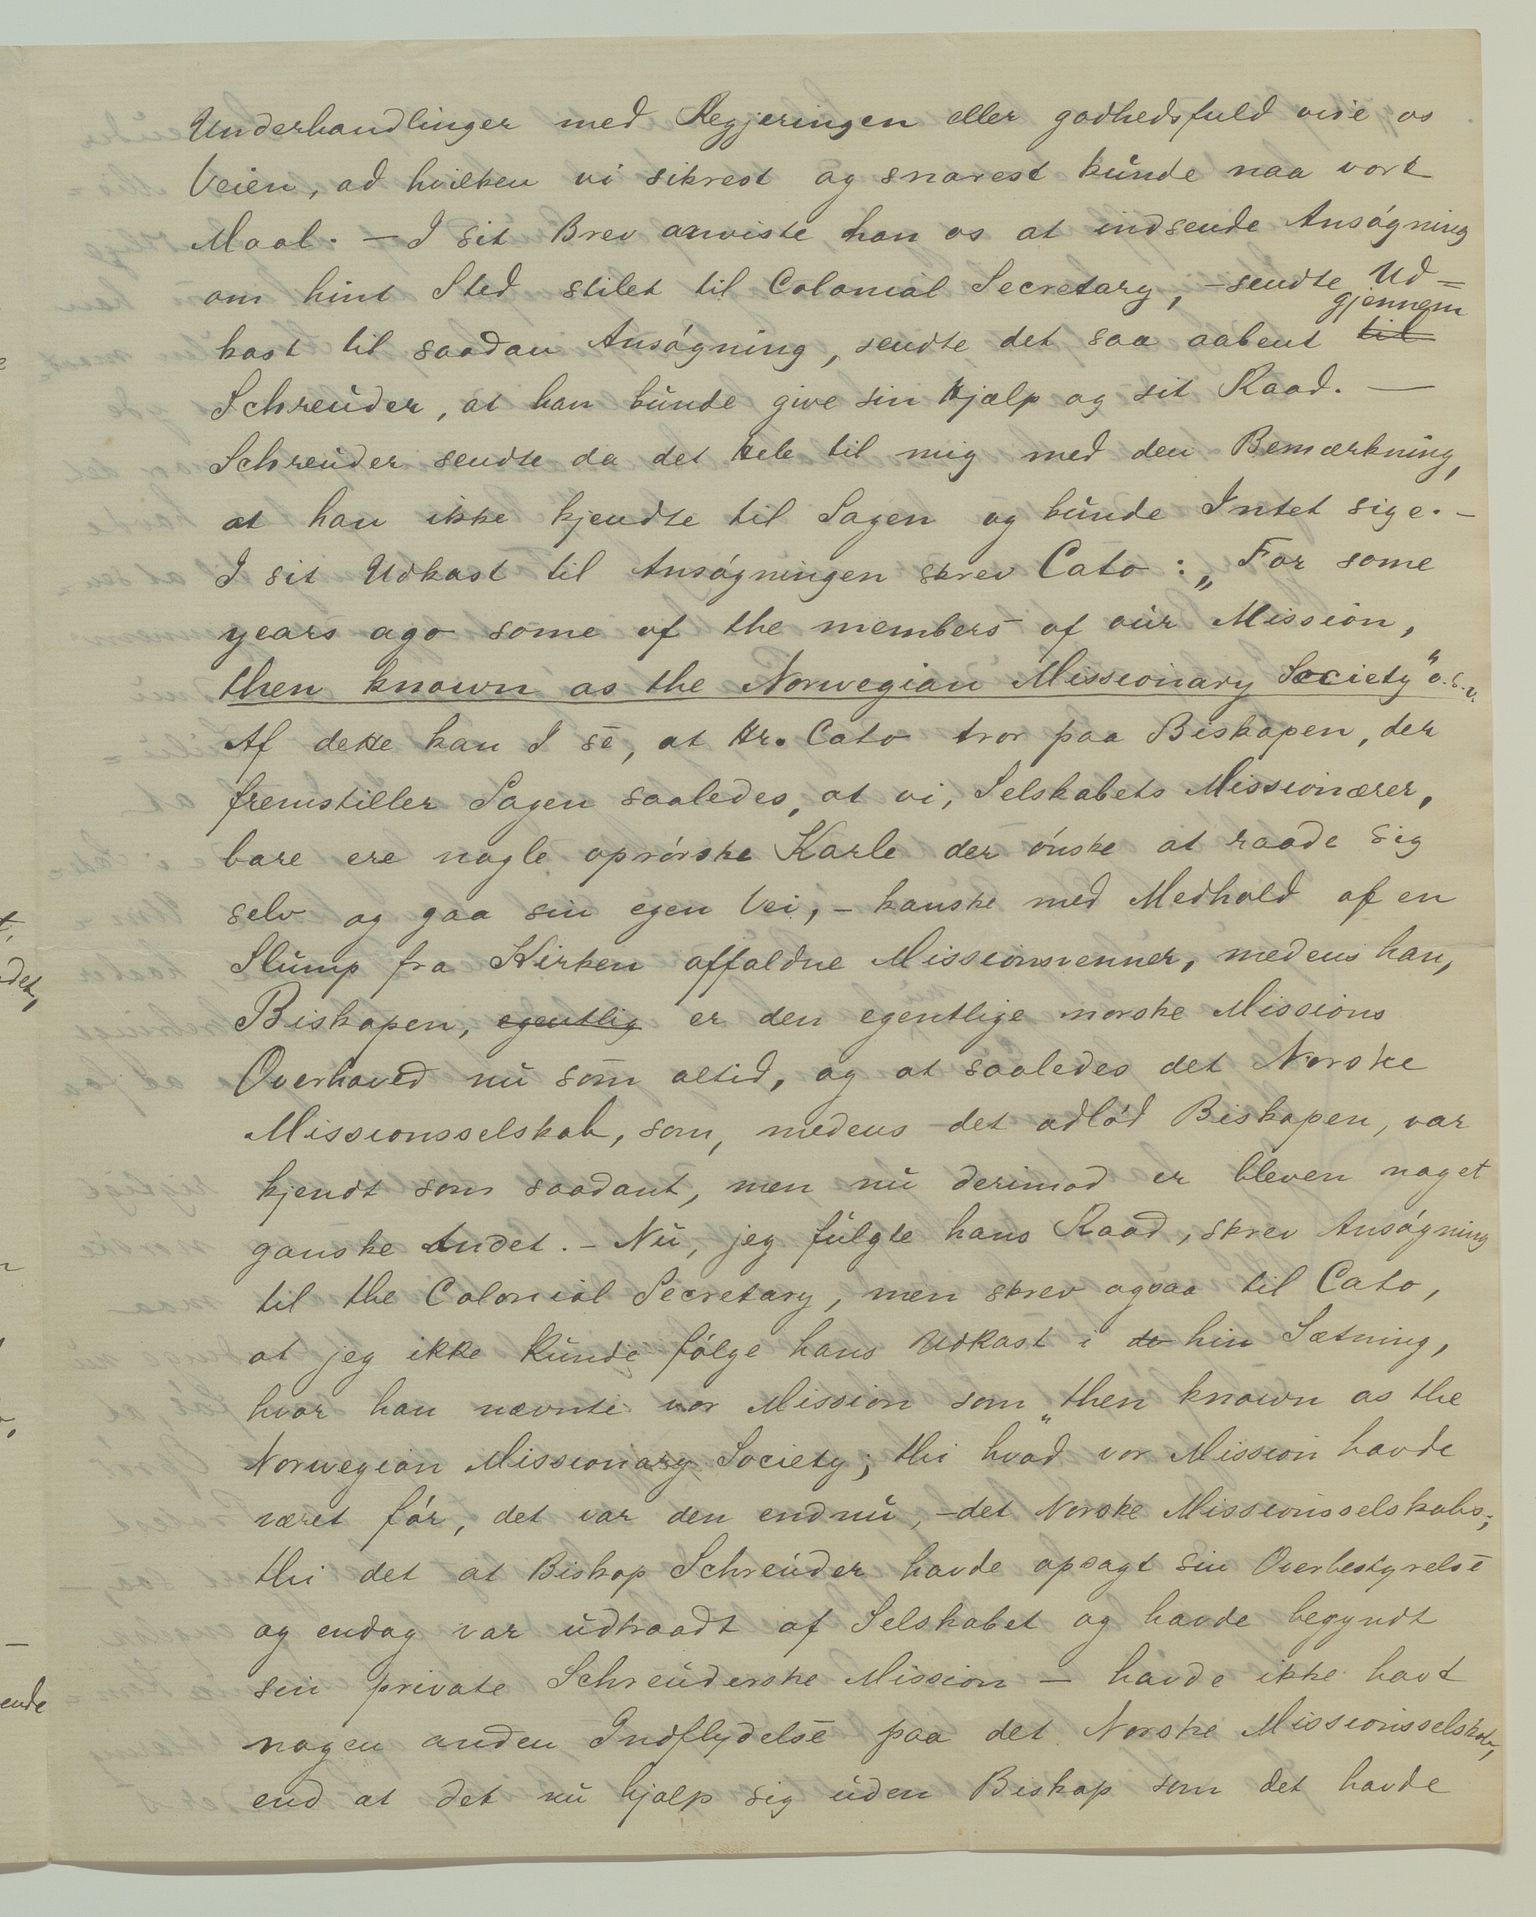 Underhandlinger med Regjeringen eller godhedsfuld vise os
Veien, ad hvilken vi sikrest og snarest kunde naa vort
Maal. — I sit Brev anviste han os at indsende Ansøgning
om hint Sted stilet til Colonial Secretary, — sendte Ud=
kast til saadan Ansøgning, sendte det saa aabent gjennem ~~til~~
Schreuder, at han kunde give sin Hjælp og sit Raad. —
Schreuder sendte da det hele til mig med den Bemærkning,
at han ikke kjendte til Sagen og kunde Intet sige. —
I sit Udkast til Ansøgningen skrev Cato: „For some
years ago some of the members of our Mission,
then known as the Norwegian Missionary Society" o.s.v.
Af dette kan I se, at Hr. Cato tror paa Biskopen, der
fremstiller Sagen saaledes, at vi, Selskabets Missionærer,
bare ere nogle oprørske Karle der ønske at raade sig
selv og gaa sin egen Vei, — kanske med Medhold af en
Slump fra Kirken affaldne Missionsvenner, medens han,
Biskopen, ~~egentlig~~ er den egentlige norske Missions
Overhoved nu som altid, og at saaledes det Norske
Missionsselskab, som, medens det adlød Biskopen, var
kjendt som saadant, men nu derimod er bleven noget
ganske Andet. — Nu, jeg fulgte hans Raad, skrev Ansøgning
til the Colonial Secretary, men skrev ogsaa til Cato,
at jeg ikke kunde følge hans Udkast i ~~de~~ hin Sætning,
hvor han nævnte vor Mission som „then known as the
Norwegian Missionary Society; thi hvad vor Mission havde
været før, det var den endnu, — det Norske Missionsselskabs;
thi det at Biskop Schreuder havde opsagt sin Overbestyrelse
og endog var udtraadt af Selskabet og havde begyndt
sin private Schreuderske Mission — havde ikke havt
nogen anden Indflydelse paa det Norske Missionsselskab,
end at det nu hjalp sig uden Biskop som det havde